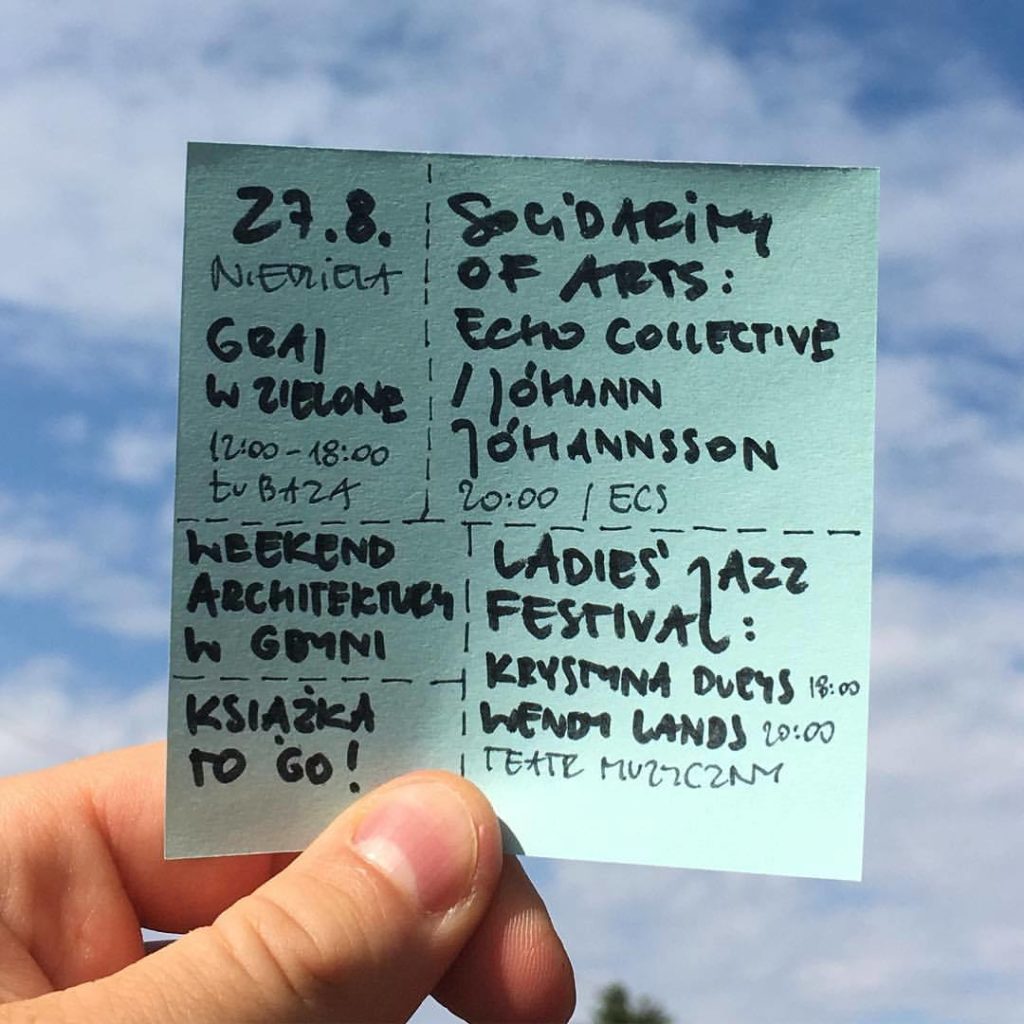 27.8.
NIEDZIELA
GRAJ
W ZIELONE
12:00-18:00
TU BAZA
SOLIDARITY
OF ARTS:
ECHO COLLECTIVE
/ JÓHANN
JÓHANNSSON
20:00 / ECS
WEEKEND
ARCHITEKTURY
W GDYNI
KSIĄŻKA
TO GO!
LADIES' JAZZ
FESTIVAL:
KRYSTYNA DURYS 18:00
WENDY LANDS 20:00
TEATR MUZYCZNY